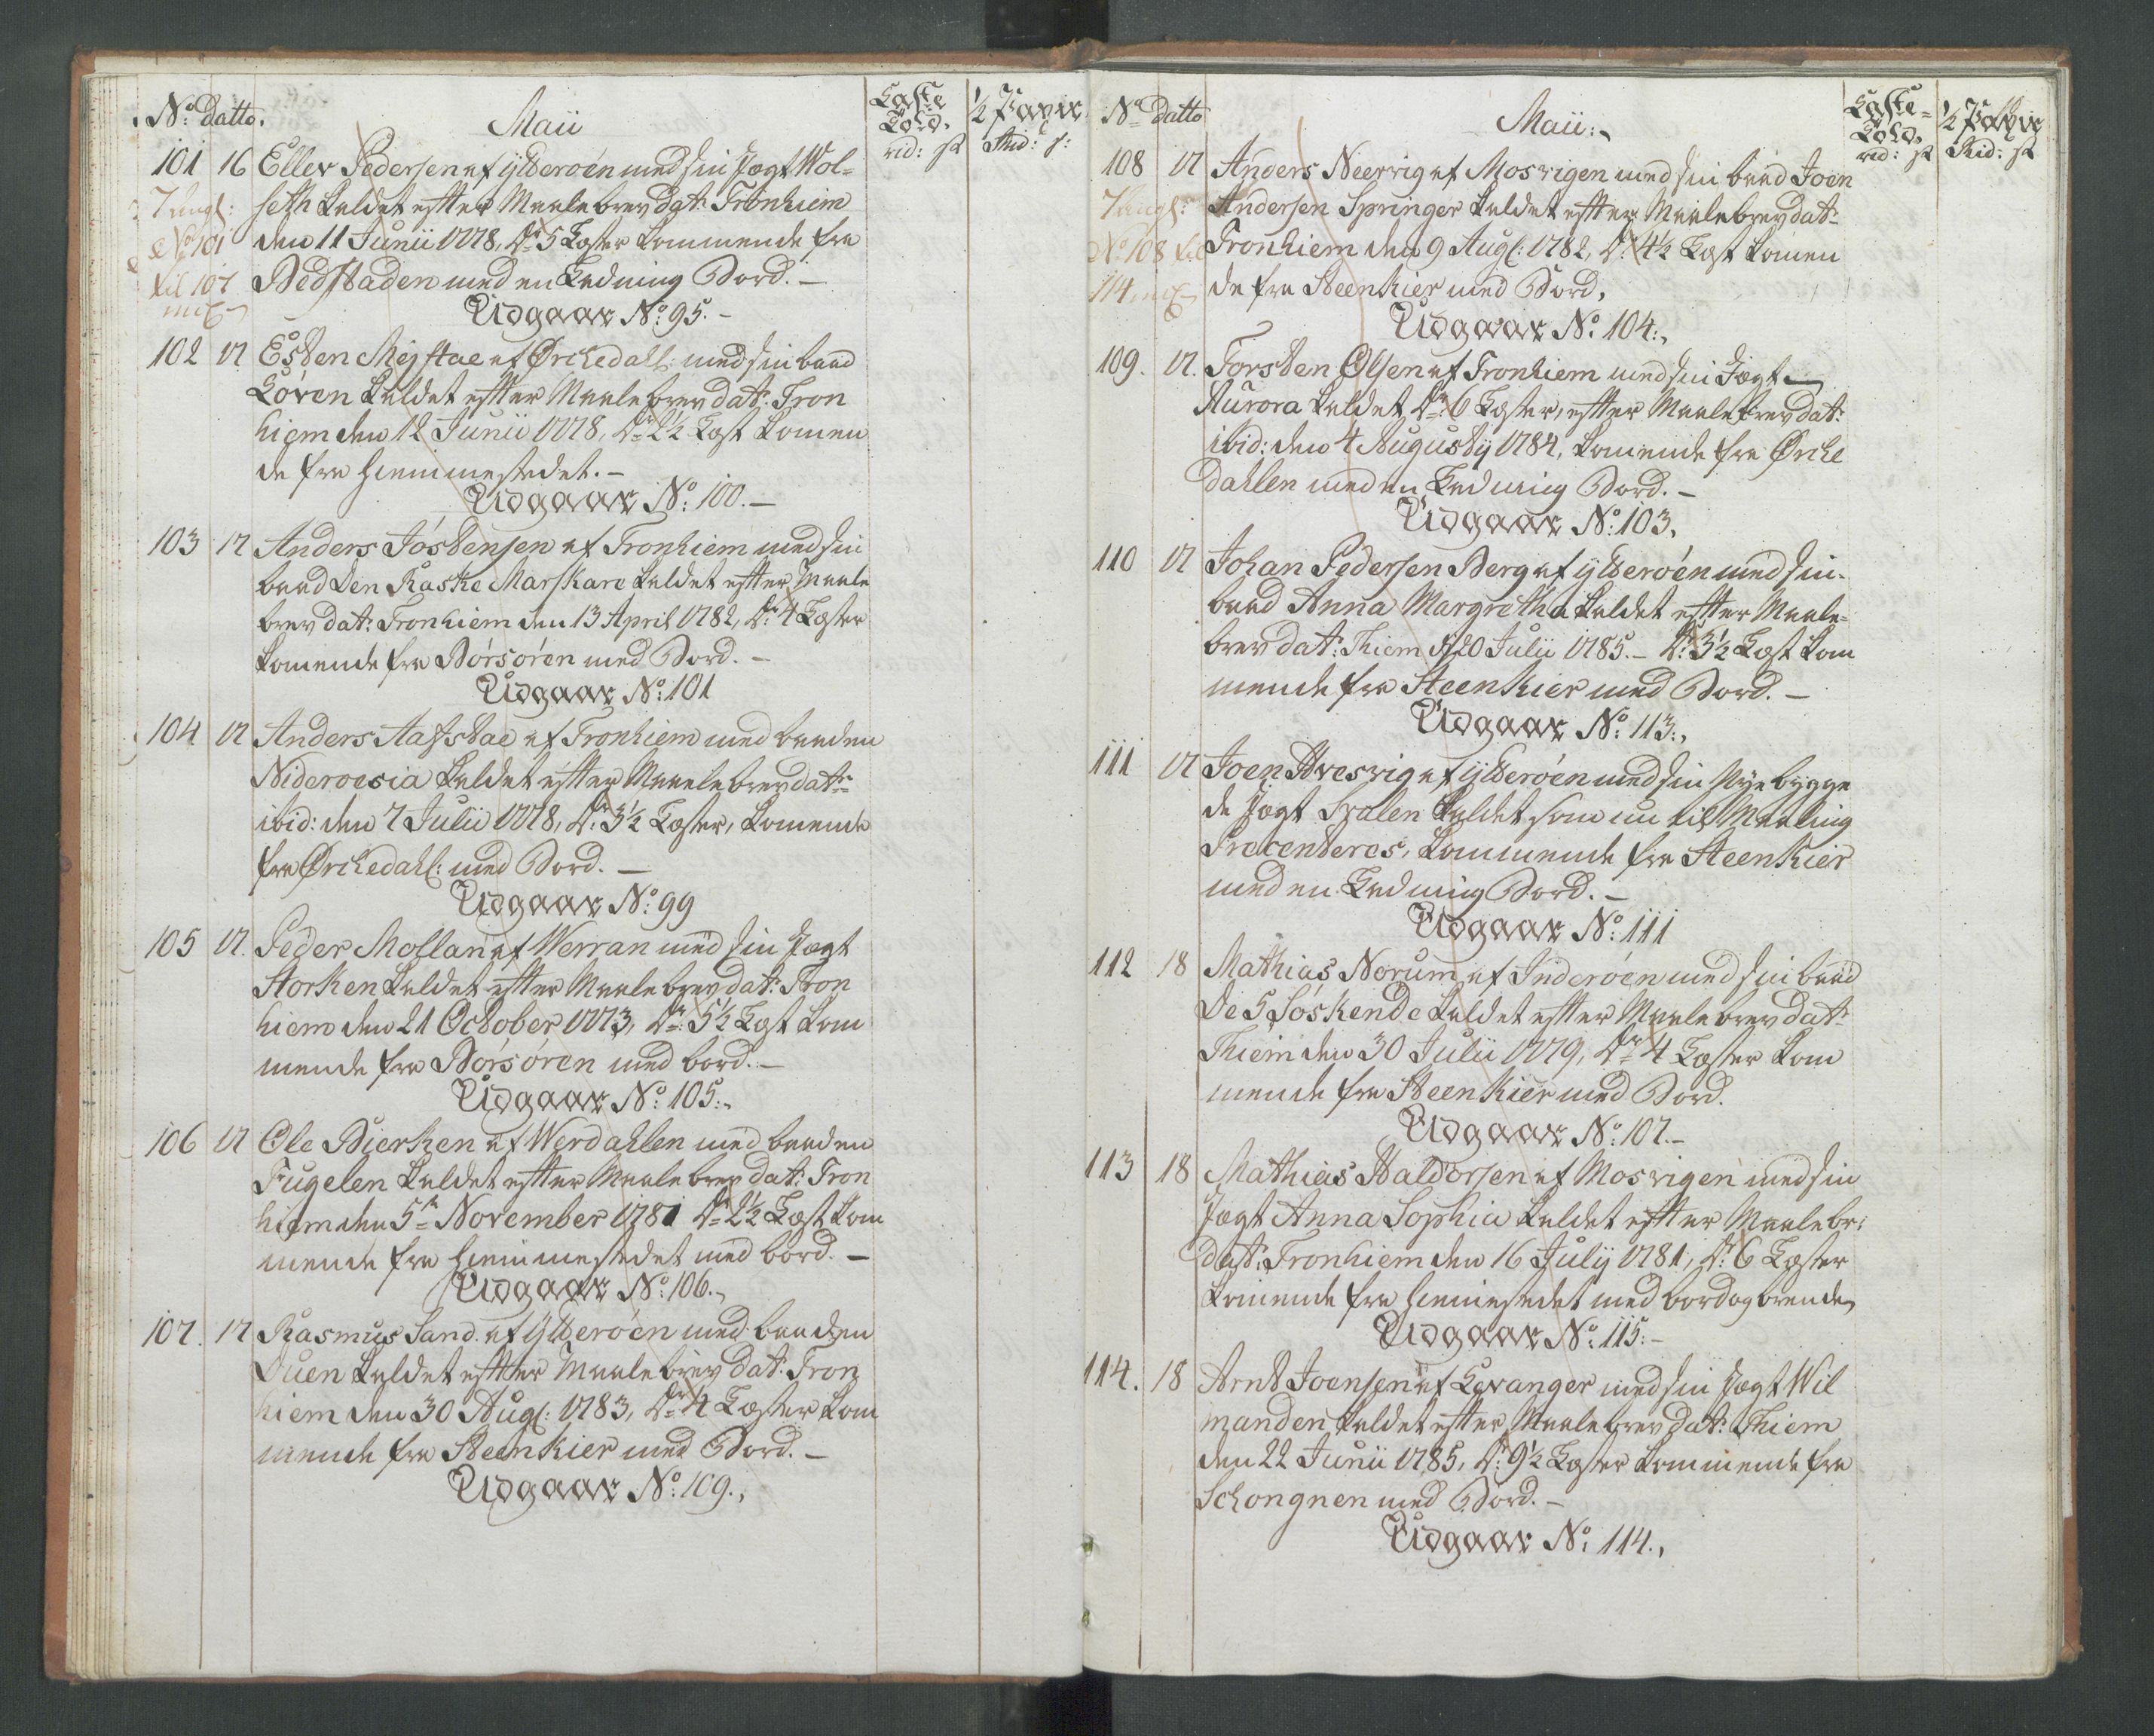 No: datto.
Maii
Læste Told. rid: sk
½Parix Rid: s:
101 16 Eller Pedersen af Ytterøen med sin Jægt Wol-
7 Angl: seth kaldet efter Maalebrev dat: Tronhiem
a No 101 den 11 Junii 1778, Dr: 5 Læster kommende fra
til 107 Bedstaden med en Ladning Bord. -
incl
Udgaar No: 95. -
102 17 Esten Mejstae af Ørchedahl: med sin baad
Løven kaldet efter Maalebrev dat: Tron
hiem den 12 Junii 1778, Dr: 2½ Læst komen
de fra hiemmestedet. -
Udgaar No: 100. -
103 17 Anders Jóstensen af Tronhiem med sin
baad Den Raske Marskare kaldet efter Maale
brev dat: Tronhiem den 13 April 1782, Dr: 4 Læster
komende fra Børsøren med Bord. -
Udgaar No: 101
104 17 Anders Aafstae af Tronhiem med baaden
Nideroesia kaldet efter Maalebrev dat:
ibid: den 7 Julii 1778, Dr: 3½ Læster, komende
fra Ørchedahl: med Bord. -
Udgaar No: 99
105 17. Peder Mollan af Werran med sin Jægt
Storken kaldet efter Maalebrev dat: Tron
hiem den 21 October 1773, Dr: 5½ Læst kom
mende fra Børsøren med bord. -
Udgaar No: 105.
106 17 Ole Bierken af Werdahlen med baaden
Fugelen kaldet efter Maalebrev dat: Tron
hiem den 5te November 1781 Dr: 2½ Læst kom
mende fra hiemmestedet med bord. -
Udgaar No: 106.
107. 17 Rasmus Sand af Ytterøen med baaden
Duen kaldet efter Maalebrev dat: Tron
hiem den 30 Aug: 1783, Dr: 4 Læster kom
mende fra Steenkier med Bord. -
Udgaar No: 109.,
No datto
Maii:
Læste- Told. rid: sk
½ Parix Rid: sk
108 17 Anders Neervig af Mosvigen med sin baad Joen
7 Angl: Andersen Springer kaldet efter Maalebrev dat:
No 108 til Tronhiem den 9 Aug: 1782, Dr: 4½ Læst komen
114 incl de fra Steenkier med Bord.
Udgaar No: 104.,
109. 17. Torsten Olsen af Tronhiem med sin Jægt
Aurora kaldet Dr: 6 Læster, efter Maalebrev dat:
ibid: den 4 Augustij 1784, komende fra Ørche
dahlen med en Ladning Bord. -
Udgaar No: 103.
110 17 Johan Pedersen Berg af Ytterøen med sin
baad Anna Margretha kaldet efter Maale-
brev dat: Thiem d 20 Julii 1785. - Dr: 3½ Læst kom
mende fra Steenkier med Bord. -
Udgaar No: 113.,
111 17 Joen Hvesvig af Ytterøen med sin Nye bygge
de Jægt Svalen kaldet som nu til Maaling
Precenteres, kommende fra Steenkier
med en Ladning Bord. -
Udgaar No: 111
112 18 Mathias Norum af Inderøen med sin baad
De 5 Søskende kaldet efter Maalebrev dat:
Thiem den 30 Julii 1779, Dr: 4 Læster kom
mende fra Steenkier med Bord.
Udgaar No: 107. -
113 18 Mathias Haldorsen af Mosvigen med sin
Jægt Anna Sophia kaldet efter Maalebr:
dat: Tronhiem den 16 Julij 1781, Dr: 6 Læster
komende fra hiemestedet med bord og brende,
Udgaar No: 115. -
114. 18 Arnt Joensen af Levanger med sin Jægt Wil
manden kaldet efter Maalebrev dat: Thiem
den 22 Junii 1785, Dr: 9½ Læster kommende fra
Schongnen med Bord. -
Udgaar No: 114.,